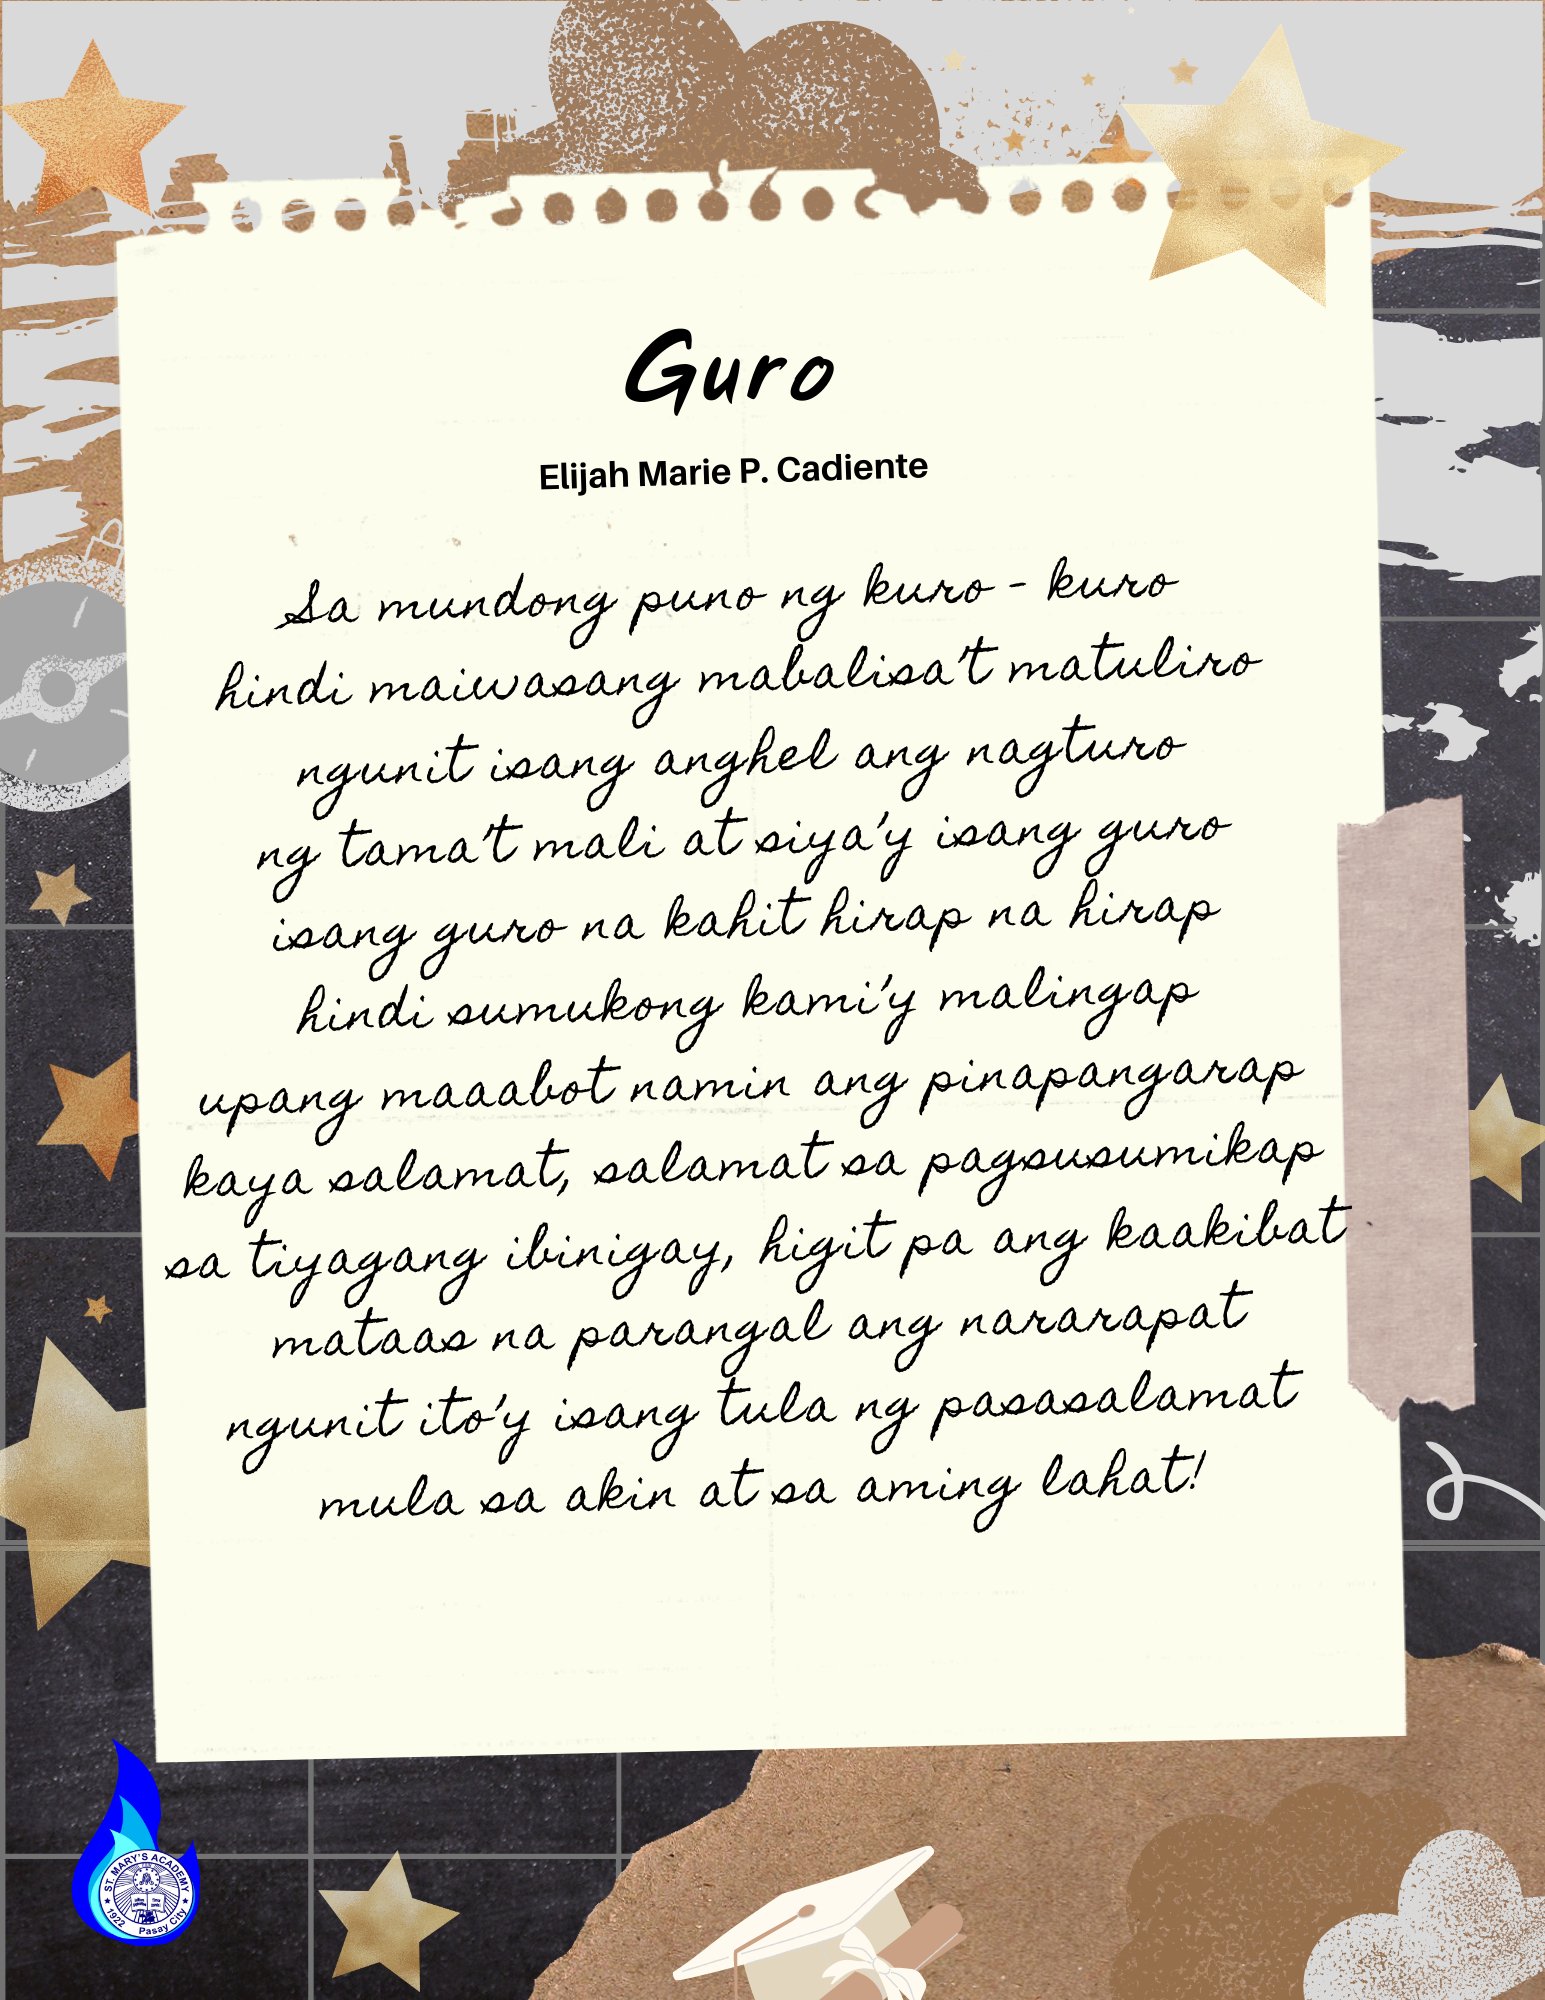 Guro
Elijah Marie P. Cadiente
Sa mundong puno ng kuro - kuro
hindi maiwasang mabalisa't matuliro
ngunit isang anghel ang nagturo
ng tama't mali at siya'y isang guro
isang guro na kahit hirap na hirap
hindi sumukong kami'y malingap
upang maaabot namin ang pinapangarap
kaya salamat, salamat sa pagsusumikap
sa tiyagang ibinigay, higit pa ang kaakibat
mataas na parangal ang nararapat
ngunit ito'y isang tula ng pasasalamat
mula sa akin at sa aming lahat!
ST. MARY'S ACADEMY
1922 Pasay City